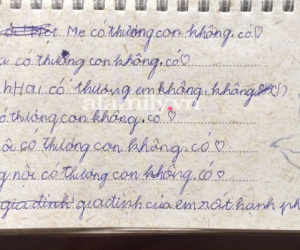 Mẹ có thương con không. có♡
có thương con không. có♡
Hai có thương em không. không
có thương con không. có ♡
nội có thương con không. có ♡
nội có thương con không. có ♡
gia đình gia đình của em rất hạnh ph
afamily.vn